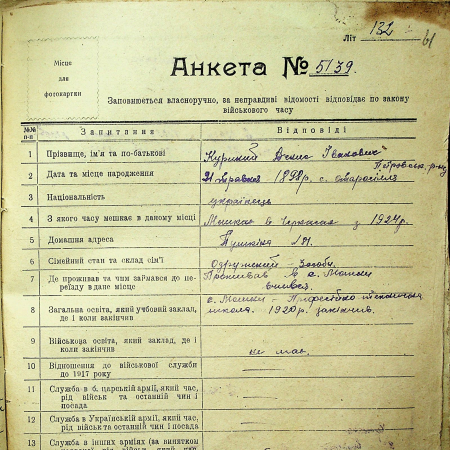 Літ 132
61
Місце
для
фотокартки
Анкета № 5139.
Заповнюється власноручно, за неправдиві відомості відповідає по закону
військового часу
№№ п-п
Запитання
Відповіді
1 Прізвище, ім'я та по-батькові
Іванович
2 Дата та місце народження
21 травня 1898 р. с.
3 Національність
українець
4 З якого часу мешкає в даному місці
Мешкає в Черкасах з 1924 р.
5 Домашня адреса
Пушкіна
6 Сімейний стан та склад сім'ї
Одружений
7 Де проживав та чим займався до пе-
реїзду в дане місце
Проживав в с. Мошни
8 Загальна освіта, який учбовий заклад,
де і коли закінчив
с. Мошни
школа. 1920 р. закінчив.
9 Військова освіта, який заклад, де і
коли закінчив
не має.
10 Відношення до військової служби
до 1917 року
11 Служба в б. царській армії, який час,
рід військ та останній чин і
посада
12 Служба в Українській армії, який час,
рід військ та останній чин і посада
13 Служба в інших арміях (за винятком